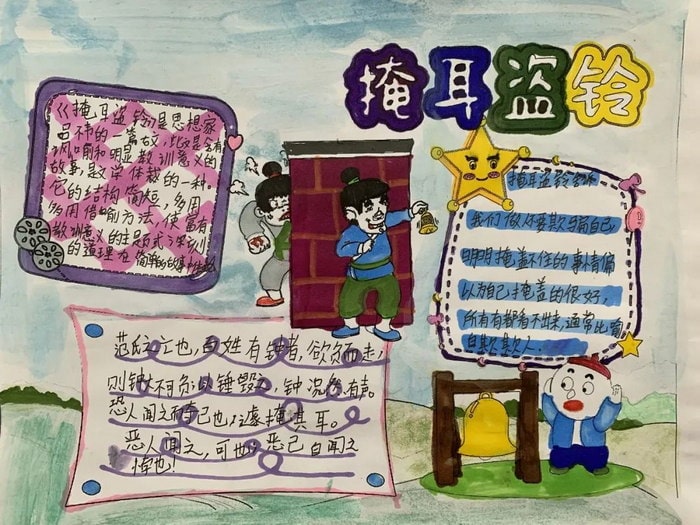 掩耳盗铃
《掩耳盗铃》是思想家
吕不韦的一篇散文,此文是含有
讽喻和明显教训意义的
故事,是文学体裁的一种。
它的结构简短,多用
多用借喻方法,使富有
教训意义的主题或深刻
的道理在简单的故事中
掩耳盗铃
我们做人不要欺骗自己
明明掩盖不住的事情偏
以为自己掩盖的很好,
所有都看不出来,通常比喻
自欺欺人.
范氏之亡也,百姓有钟者,欲负而走,
则钟大不可负,以锤毁之,钟况然有声。
恐人闻之而夺己也,遽掩其耳。
恶人闻之,可也,恶己自闻之
悖也!